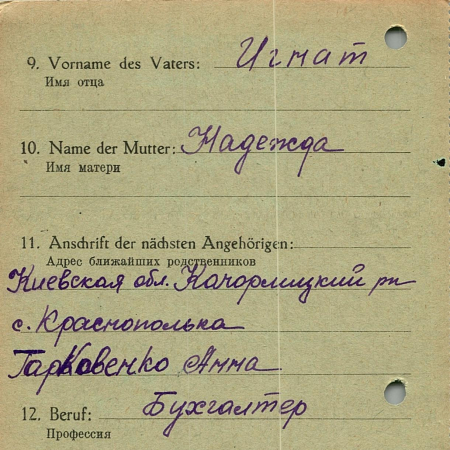 9. Vorname des Vaters: Игнат
Имя отца
10. Name der Mutter: Надежда
Имя матери
11. Anschrift der nächsten Angehörigen:
Адрес ближайших родственников
Киевская обл. Качорлицкий рн
с. Краснополька
Гарковенко Анна
12. Beruf: Бухгалтер
Профессия